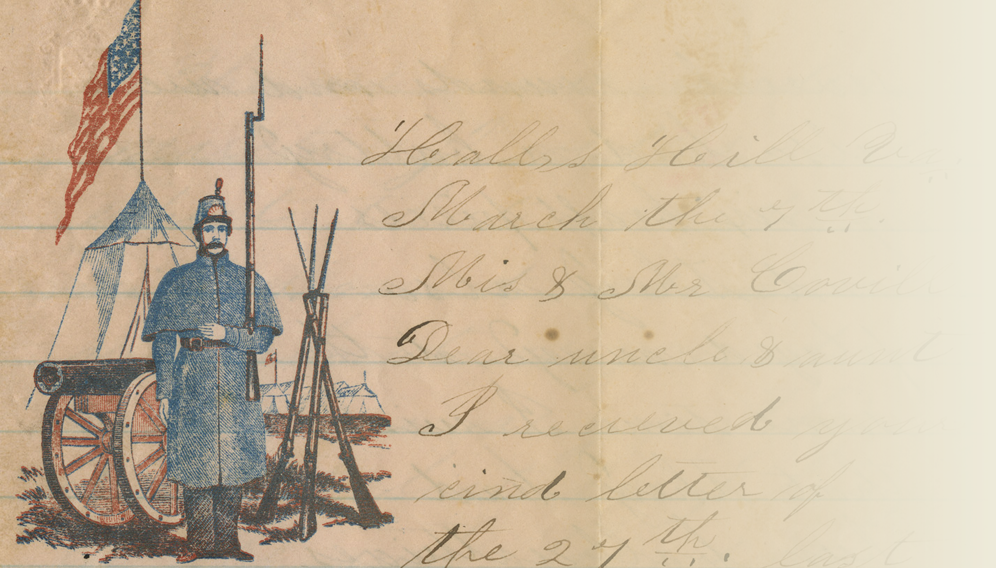 Halls Hill Va
March the 7th.
Mis & Mr
Dear uncle & aunt
I recieved your
cind letter of
the 27th. last